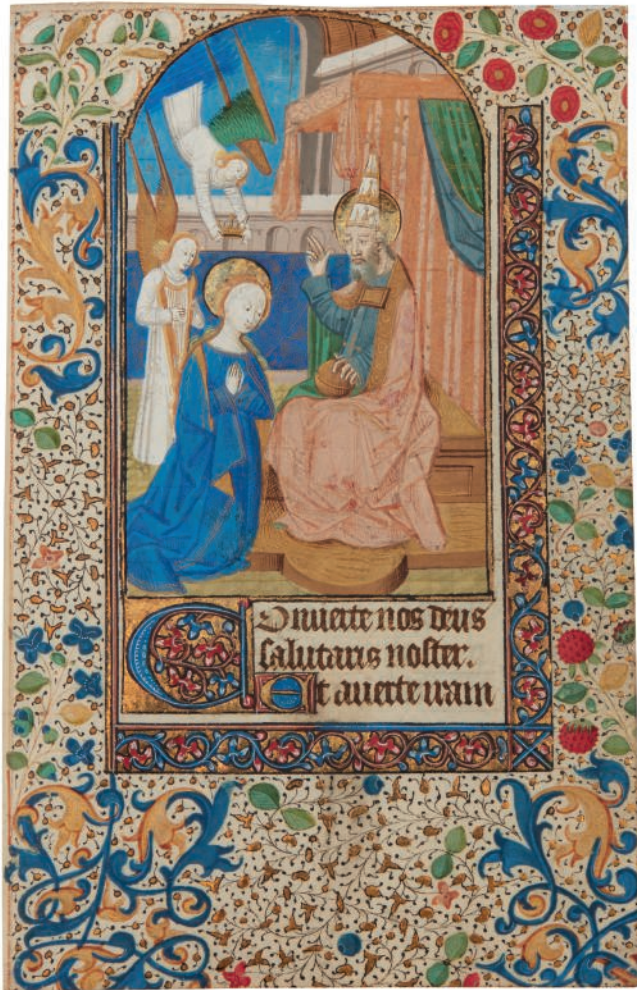 Conuerte nos deus
salutaris noster.
Et auerte iram